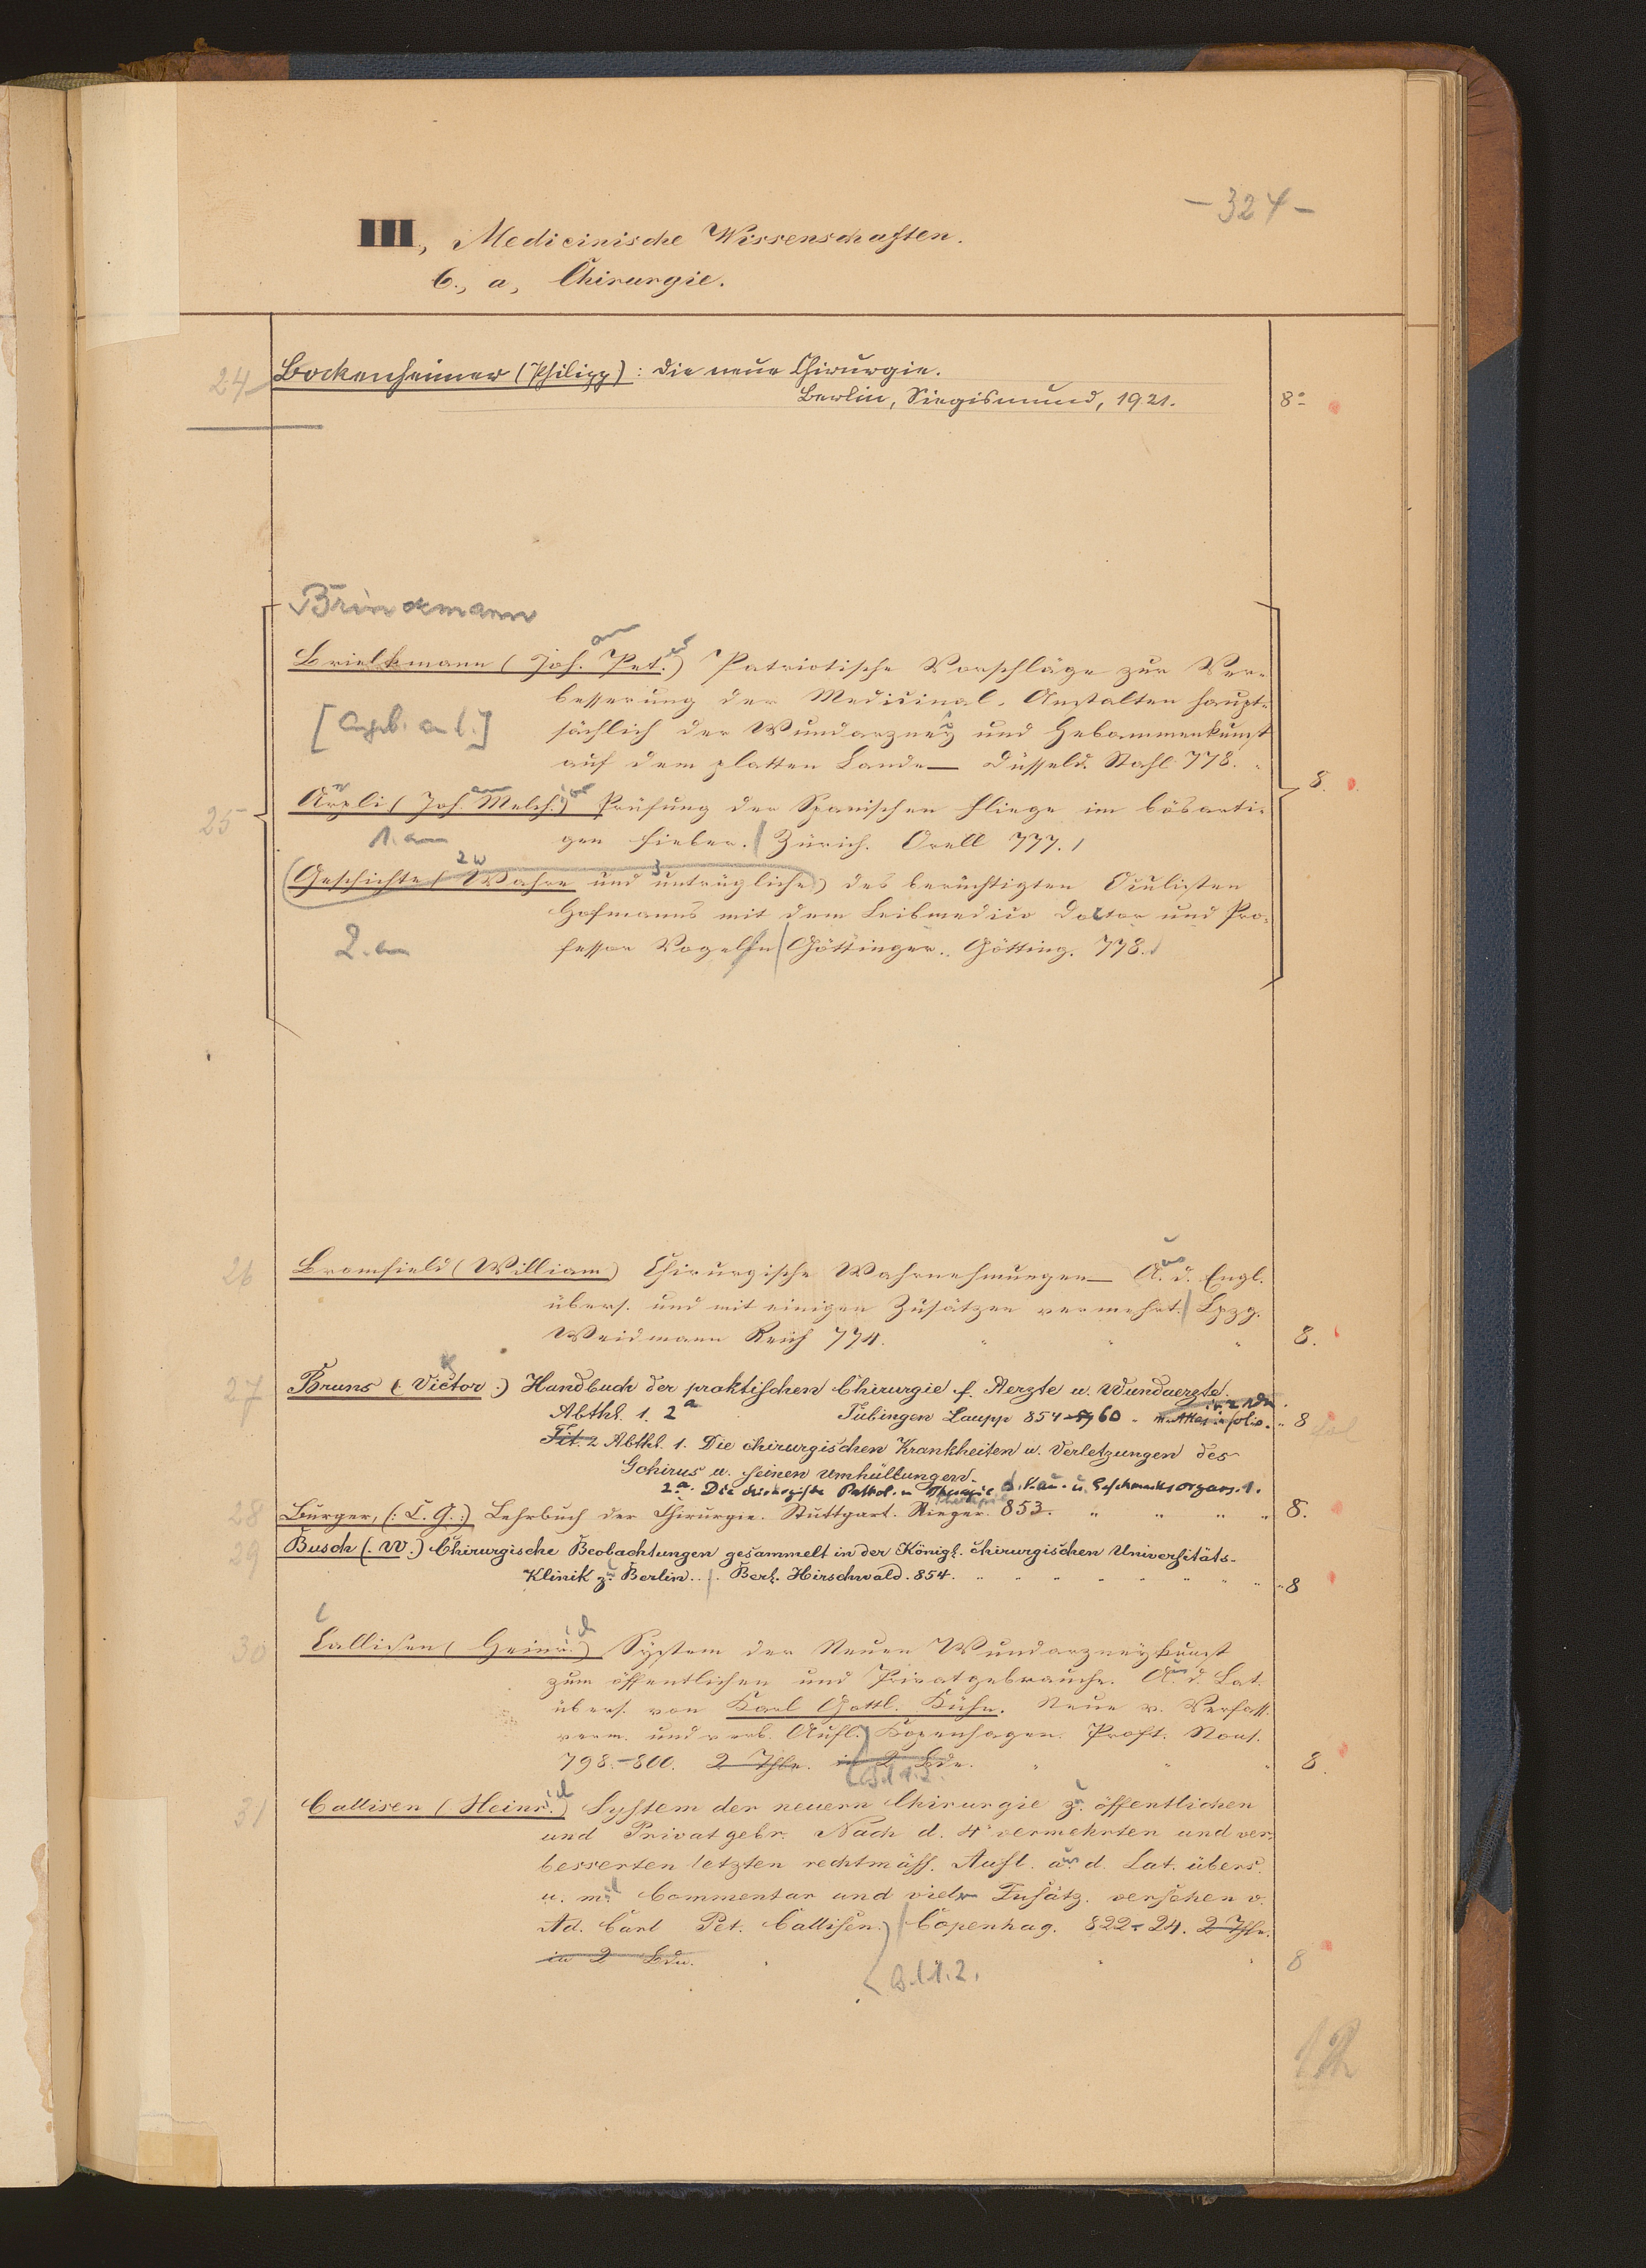 - 324 -
III., Medicinische Wissenschaften.
C., a, Chirurgie.
24 Bockenheimer (Philipp): Die neue Chirurgie.
Berlin, Siegismund, 1921. 8°
Brinckmann
Brielkmann (Joh. Pet.) Patriotische Vorschläge zur Ver-
besserung der Medicinal-Anstalten haupt-
[Angeb. an l.] sächlich der Wundarzney und Hebammenkunst
auf dem platten Lande — Düsseld. Stahl 778.
25 Aepli (Joh. Melch.) Prüfung der Spanischen Fliege im bösarti- 8.
1. an gen Fieber. Zürich. Orell 777.
(Geschichte (Wahre und untrügliche) des berüchtigten Oculisten
Hofmanns mit dem Leibmedico Doctor und Pro-
2. an fessor Vogel in Göttingen. Götting. 778.
26 Bromfield (William) Chirurgische Wahrnehmungen — A. d. Engl.
übers. und mit einigen Zusätzen vermehrt. Lpzg.
Weidmann Reich 774. 8.
27 Bruns (Victor.) Handbuch der praktischen Chirurgie f. Aerzte u. Wundaerzte.
Abthl. 1. 2a Tübingen Laupp 854-60 m. Atlas in folio. 8
Tit. 2 Abthl. 1. Die chirurgischen Krankheiten u. Verletzungen des
Gehirns u. seinen Umhüllungen.
2.a. Die chirurgische Pathol. u Therapie d. Kau- u. Geschmacksorgans. 1.
28 Burger, (: C. G. :) Lehrbuch der Chirurgie. Stuttgart. Rieger. 853. 8.
29 Busch (. W.) Chirurgische Beobachtungen gesammelt in der Königl. chirurgischen Universitäts-
Klinik z. Berlin. Berl. Hirschwald. 854. 8
30 Callisen (Heinr.) System der Neuen Wundarzneykunst
zum öffentlichen und Privatgebrauche. A. d. Lat.
übers. von Karl Gottl. Kühn. Neue v. Verfass.
verm. und verb. Aufl. Kopenhagen. Proft. Nous.
798.-800. 2 Thle. in 2 Bdn. 8.
Bd 1. 2.
31 Callisen (Heinr.) System der neuern Chirurgie z. öffentlichen
und Privatgebr. Nach d. 4t vermehrten und ver-
besserten letzten rechtmäss. Aufl. aus d. Lat. übers.
u. mit Commentar und vielen Zusätz. versehen v.
Ad. Carl Pet. Callisen. Copenhag. 822-24. 2 Thle.
in 2 Bdn. 8
Bd 1. 2.
12